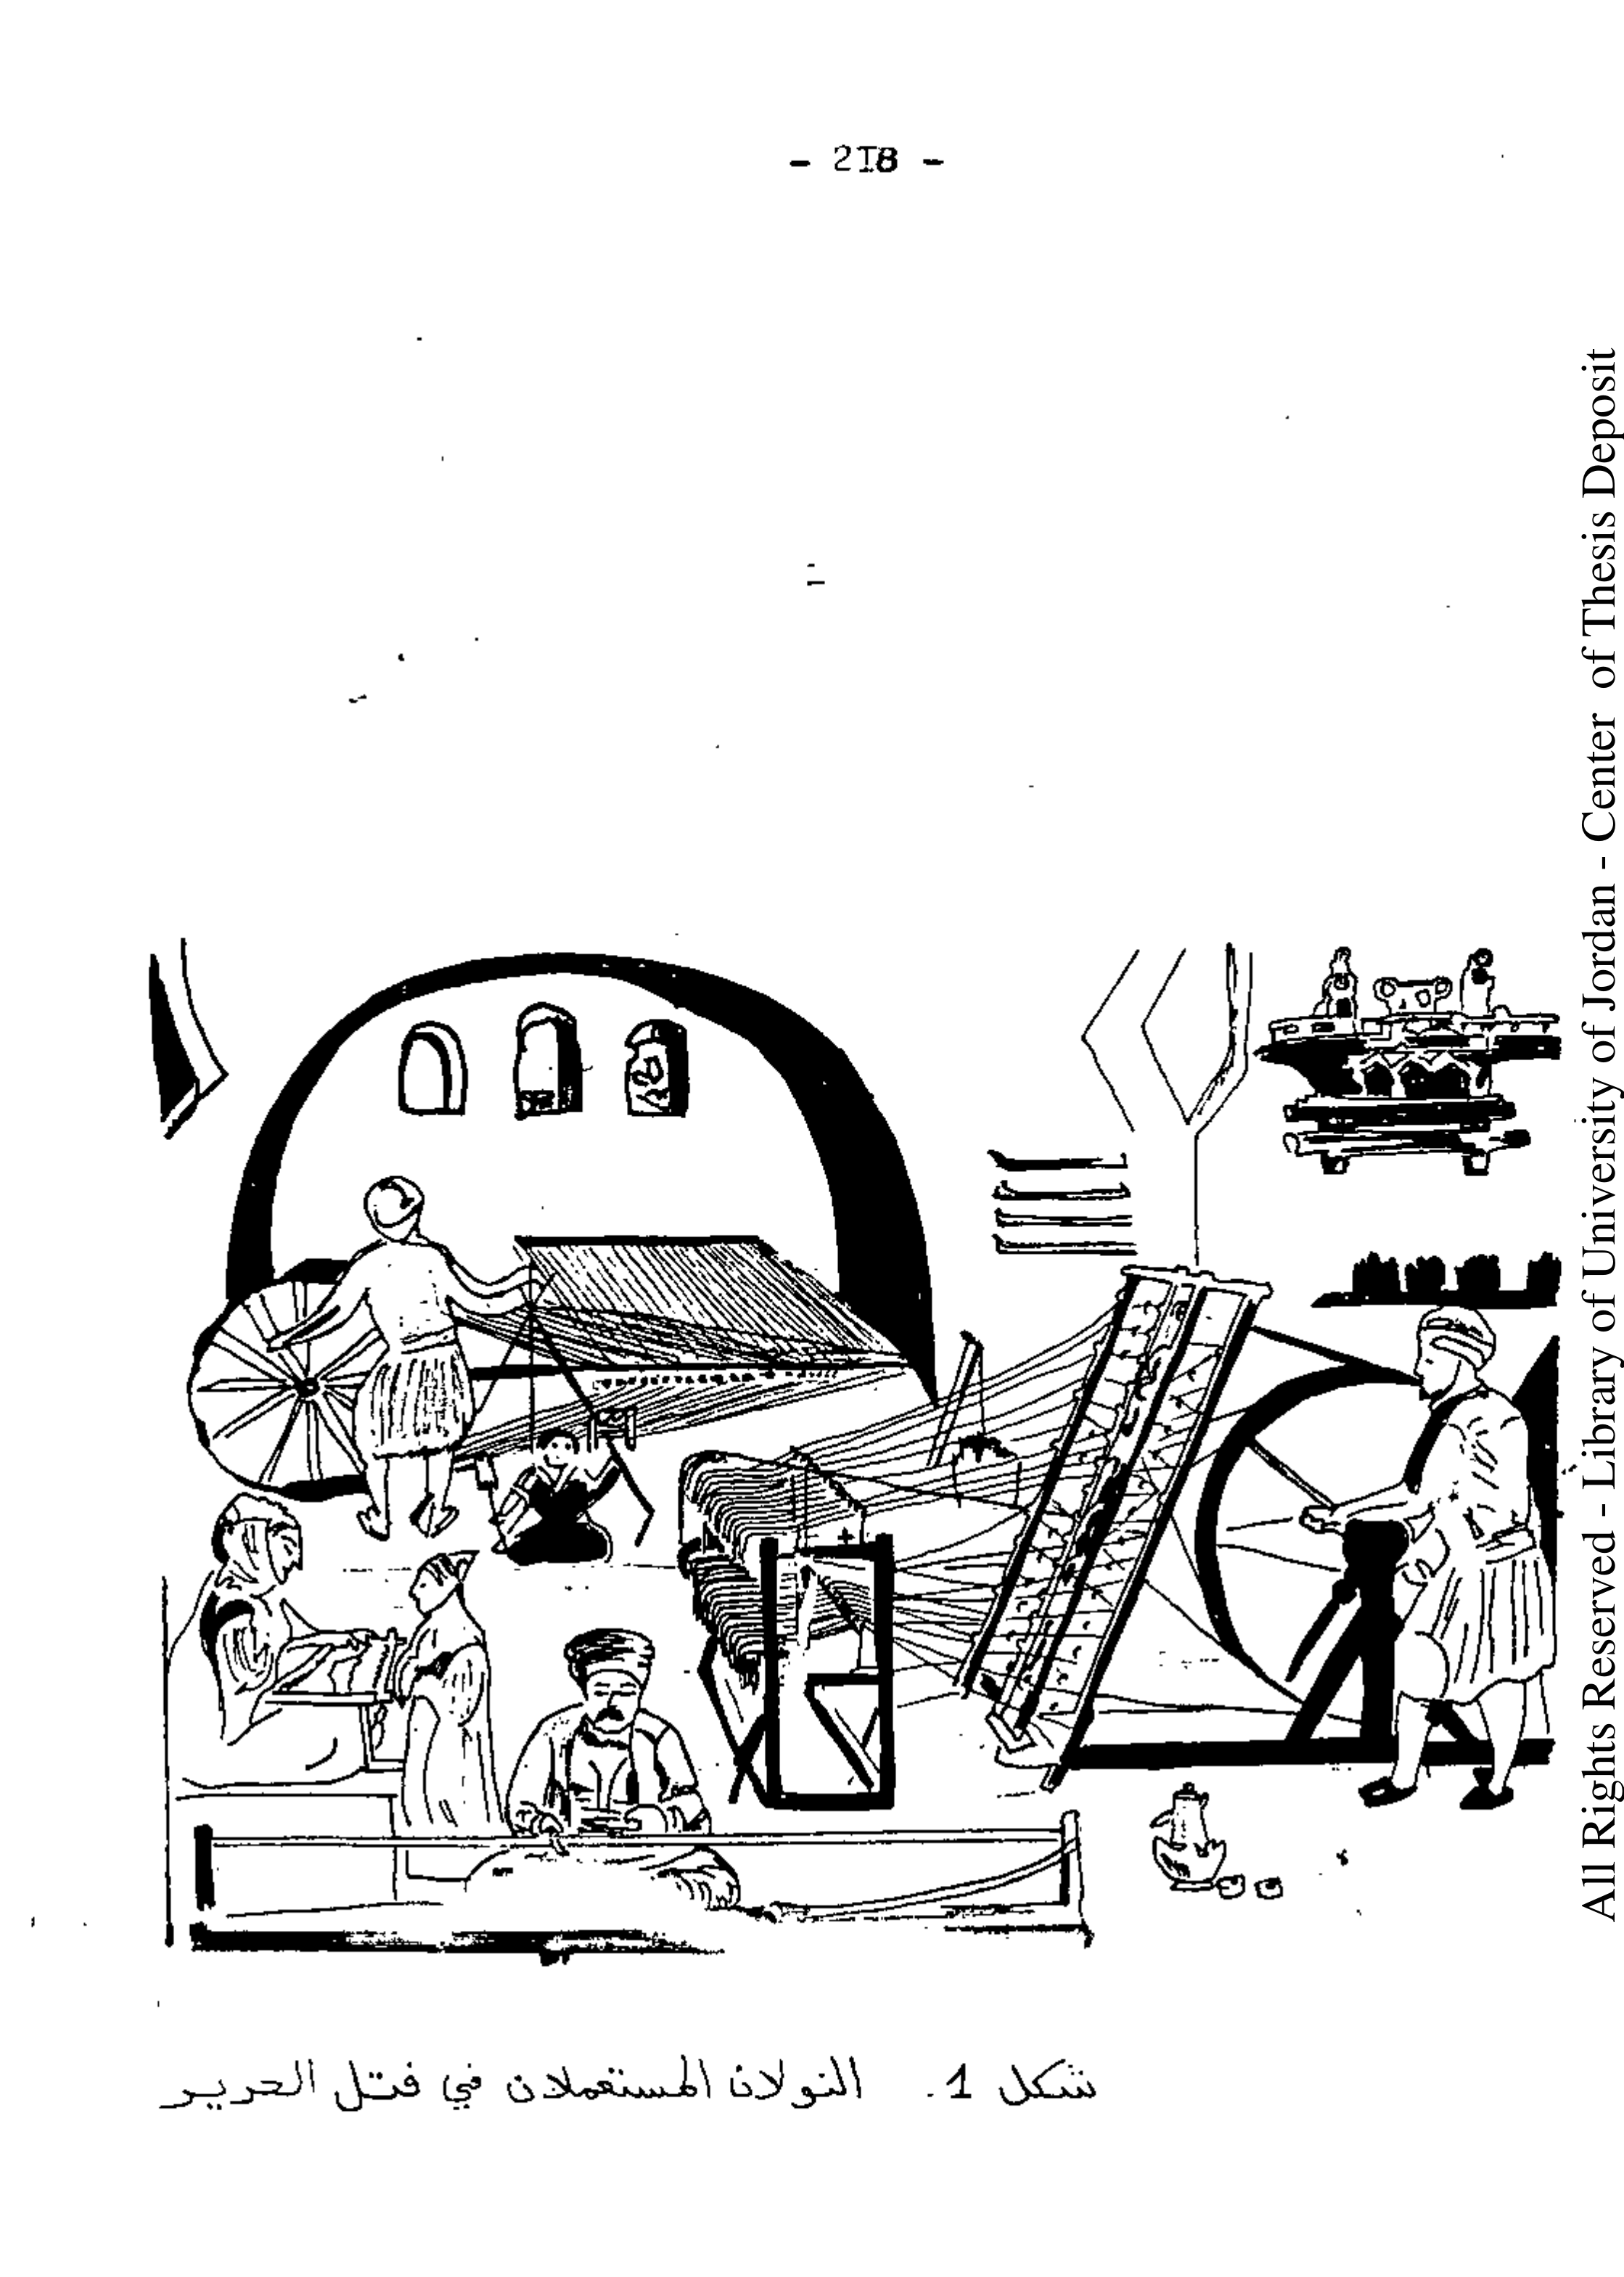 - 2I8 -
شكل 1. النولان المستعملان في فتل الحرير
All Rights Reserved - Library of University of Jordan - Center of Thesis Deposit